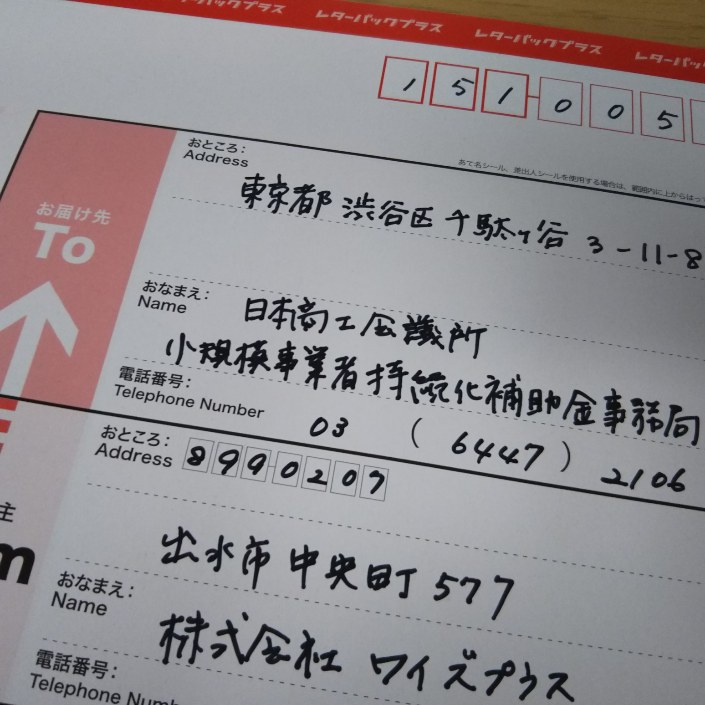 レターパックプラス レターパックプラス レターパックプラス
151005
おところ:
Address
あて名シール、差出人シールを使用する場合は、範囲内に上からはっ
東京都 渋谷区 千駄ヶ谷 3-11-8
お届け先
To
おなまえ:
Name
日本商工会議所
小規模事業者持続化補助金事務局
電話番号:
Telephone Number
03 (6447) 2106
おところ:
Address
8990207
出水市 中央町 577
主
m
おなまえ:
Name
株式会社 ワイズプラス
電話番号:
Telephone Num